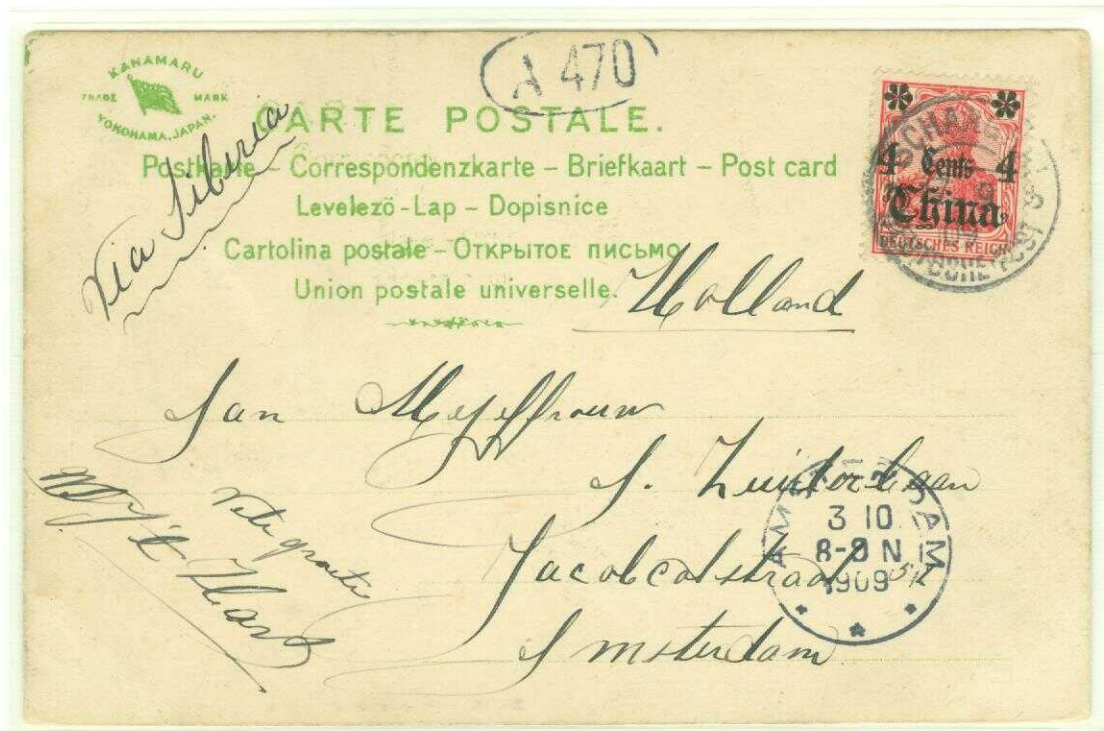 KANAMARU
TRADE MARK
YOKOHAMA, JAPAN.
A 470
CARTE POSTALE.
Postkarte – Correspondenzkarte – Briefkaart – Post card
Levelezö - Lap – Dopisnice
Cartolina postale – Открытое письмо
Union postale universelle.
Via Siberia
4 Cents 4
China
DEUTSCHES REICH
DEUTSCHE POST
Holland
Aan Mejuffrouw
S. Zuiderbaan
Jacob
Amsterdam
AMSTERDAM
3 10
8-9 N
1909
't Hart